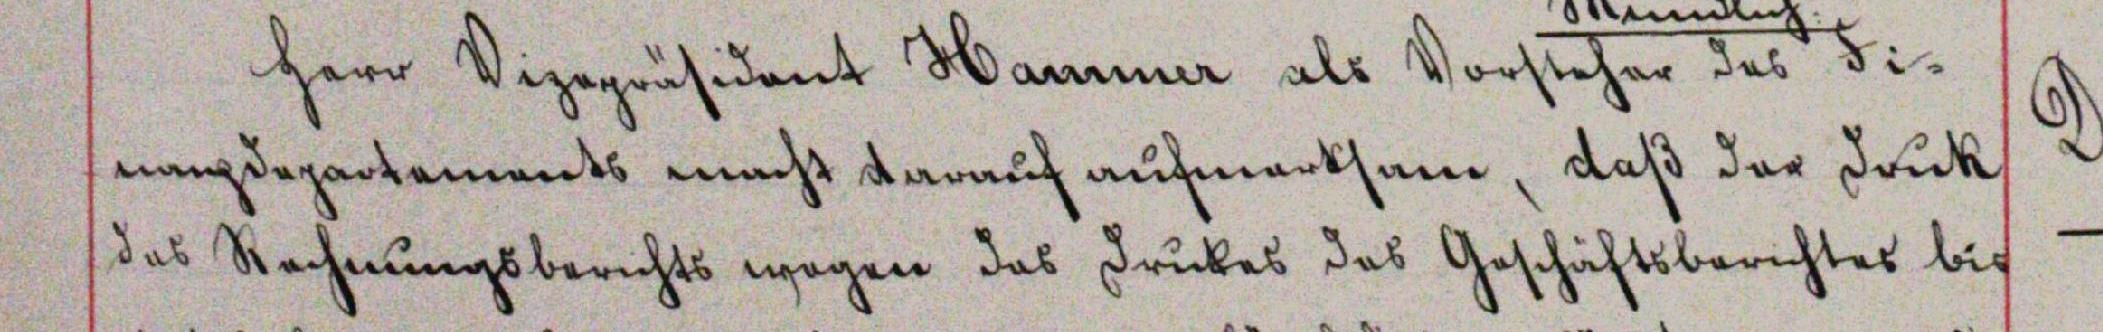 Mündlich.
Herr Vizepräsident Hammer als Vorsteher des Fi-
nanzdepartements macht darauf aufmerksam, daß der Druk
des Rechnungsberichts wegen des Drukes des Geschäftsberichtes bis
D